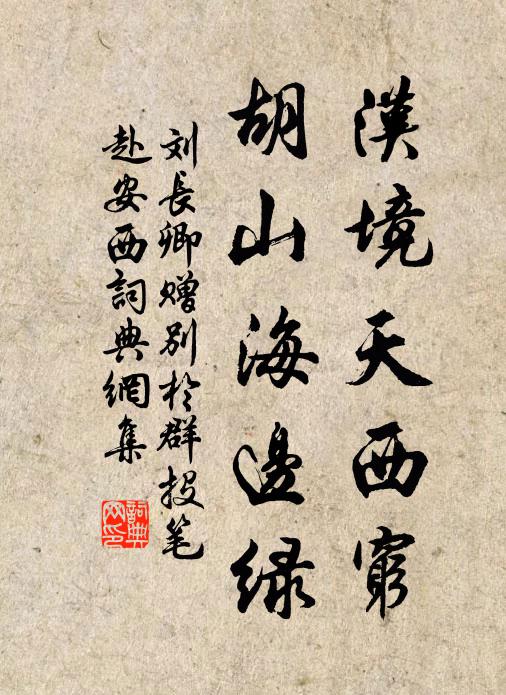 漢境天西窮
胡山海邊绿
刘長卿赠别於群投笔
赴安西詞典網集
詞典
网印